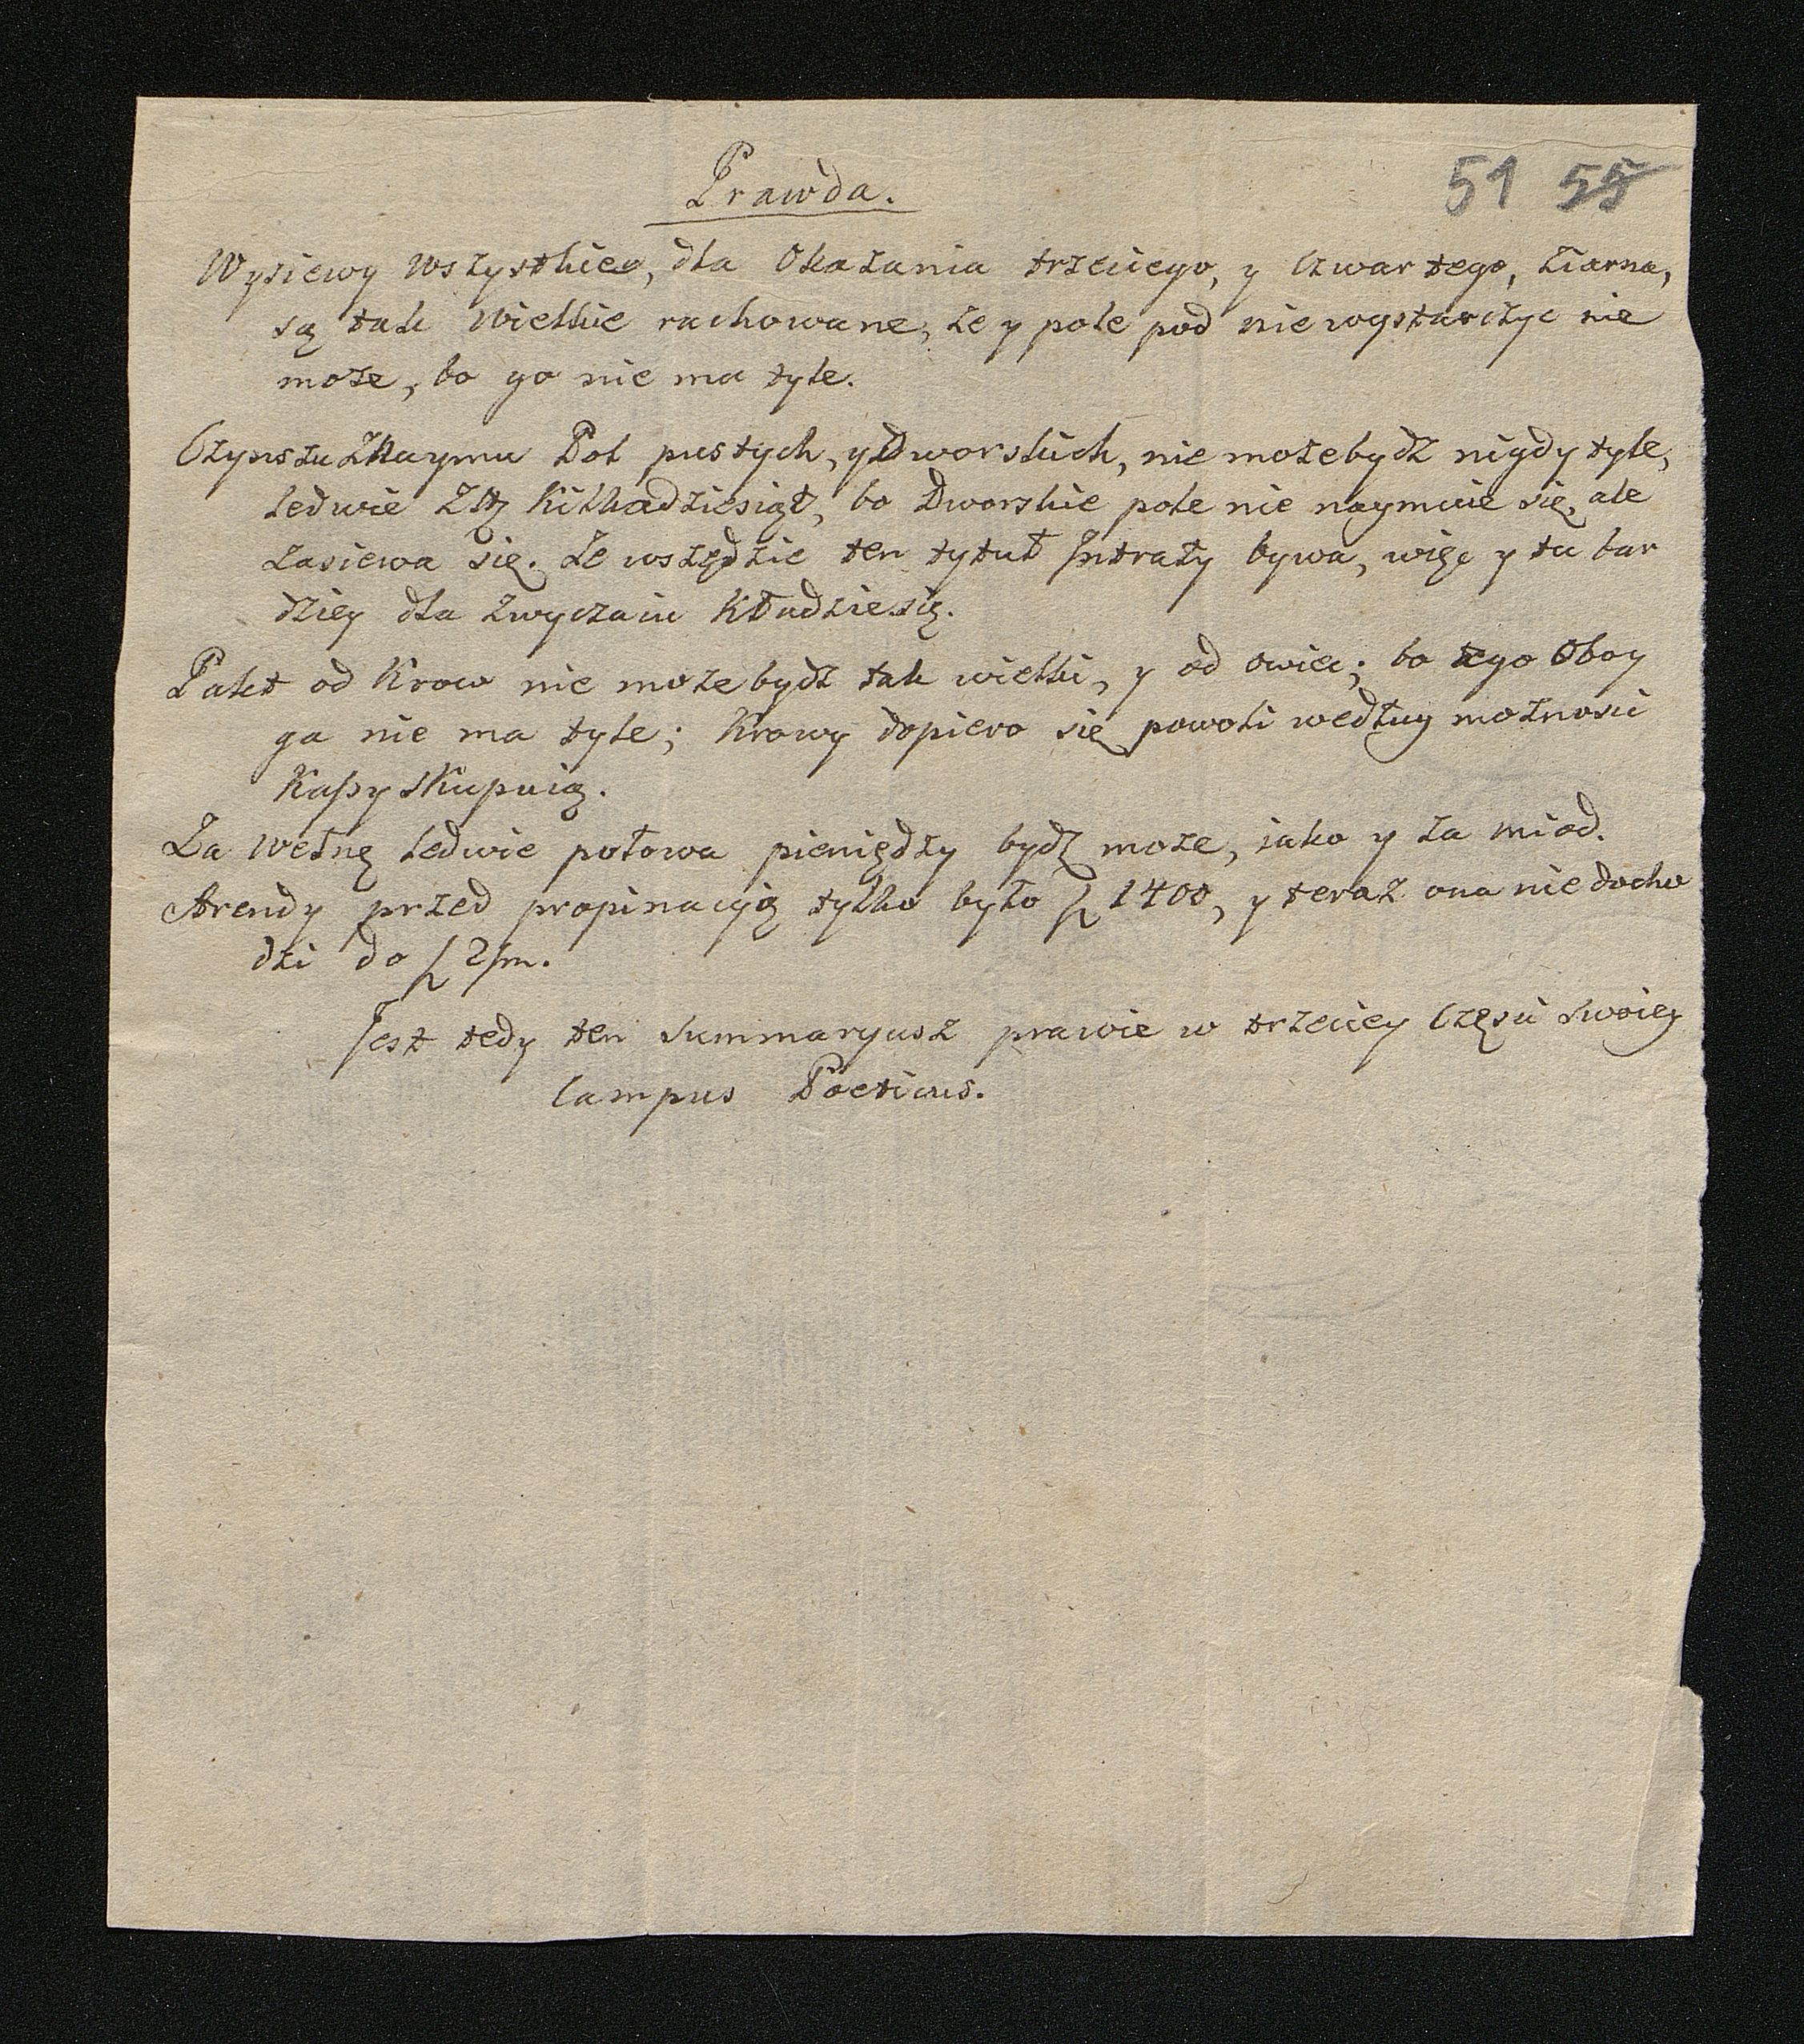 Prawda.
51 55
Wysiewy wszystkiego, dla Okazania trzeciego, y czwartego, ziarna,
są tak wielkie rachowane, że y pole pod nie wystarczyc nie
może, bo go nie ma tyle.
Czynszu z Naymu Pol pustych, y Dworskich, nie może bydz nigdy tyle,
ledwie Złł kilkadziesiąt, bo Dworskie pole nie naymuie się, ale
zasiewa się. Ze wszędzie ten tytuł Jntraty bywa, więc y tu bar
dziey dla zwyczaiu kładzie się.
Pakt od krow nie może bydz tak wielki, y od owiec; bo tego Oboy
ga nie ma tyle; krowy dopiero się powoli według możności
Kassy skupuią.
Za wełnę ledwie połowa pieniędzy bydz może, iako y za miod.
Arendy przed propinacyią tylko było f 1400, y teraz ona nie docho
dzi do f 2/m.
Jest tedy ten summaryusz prawie w trzeciey Częsci swoiey
Campus Poeticus.